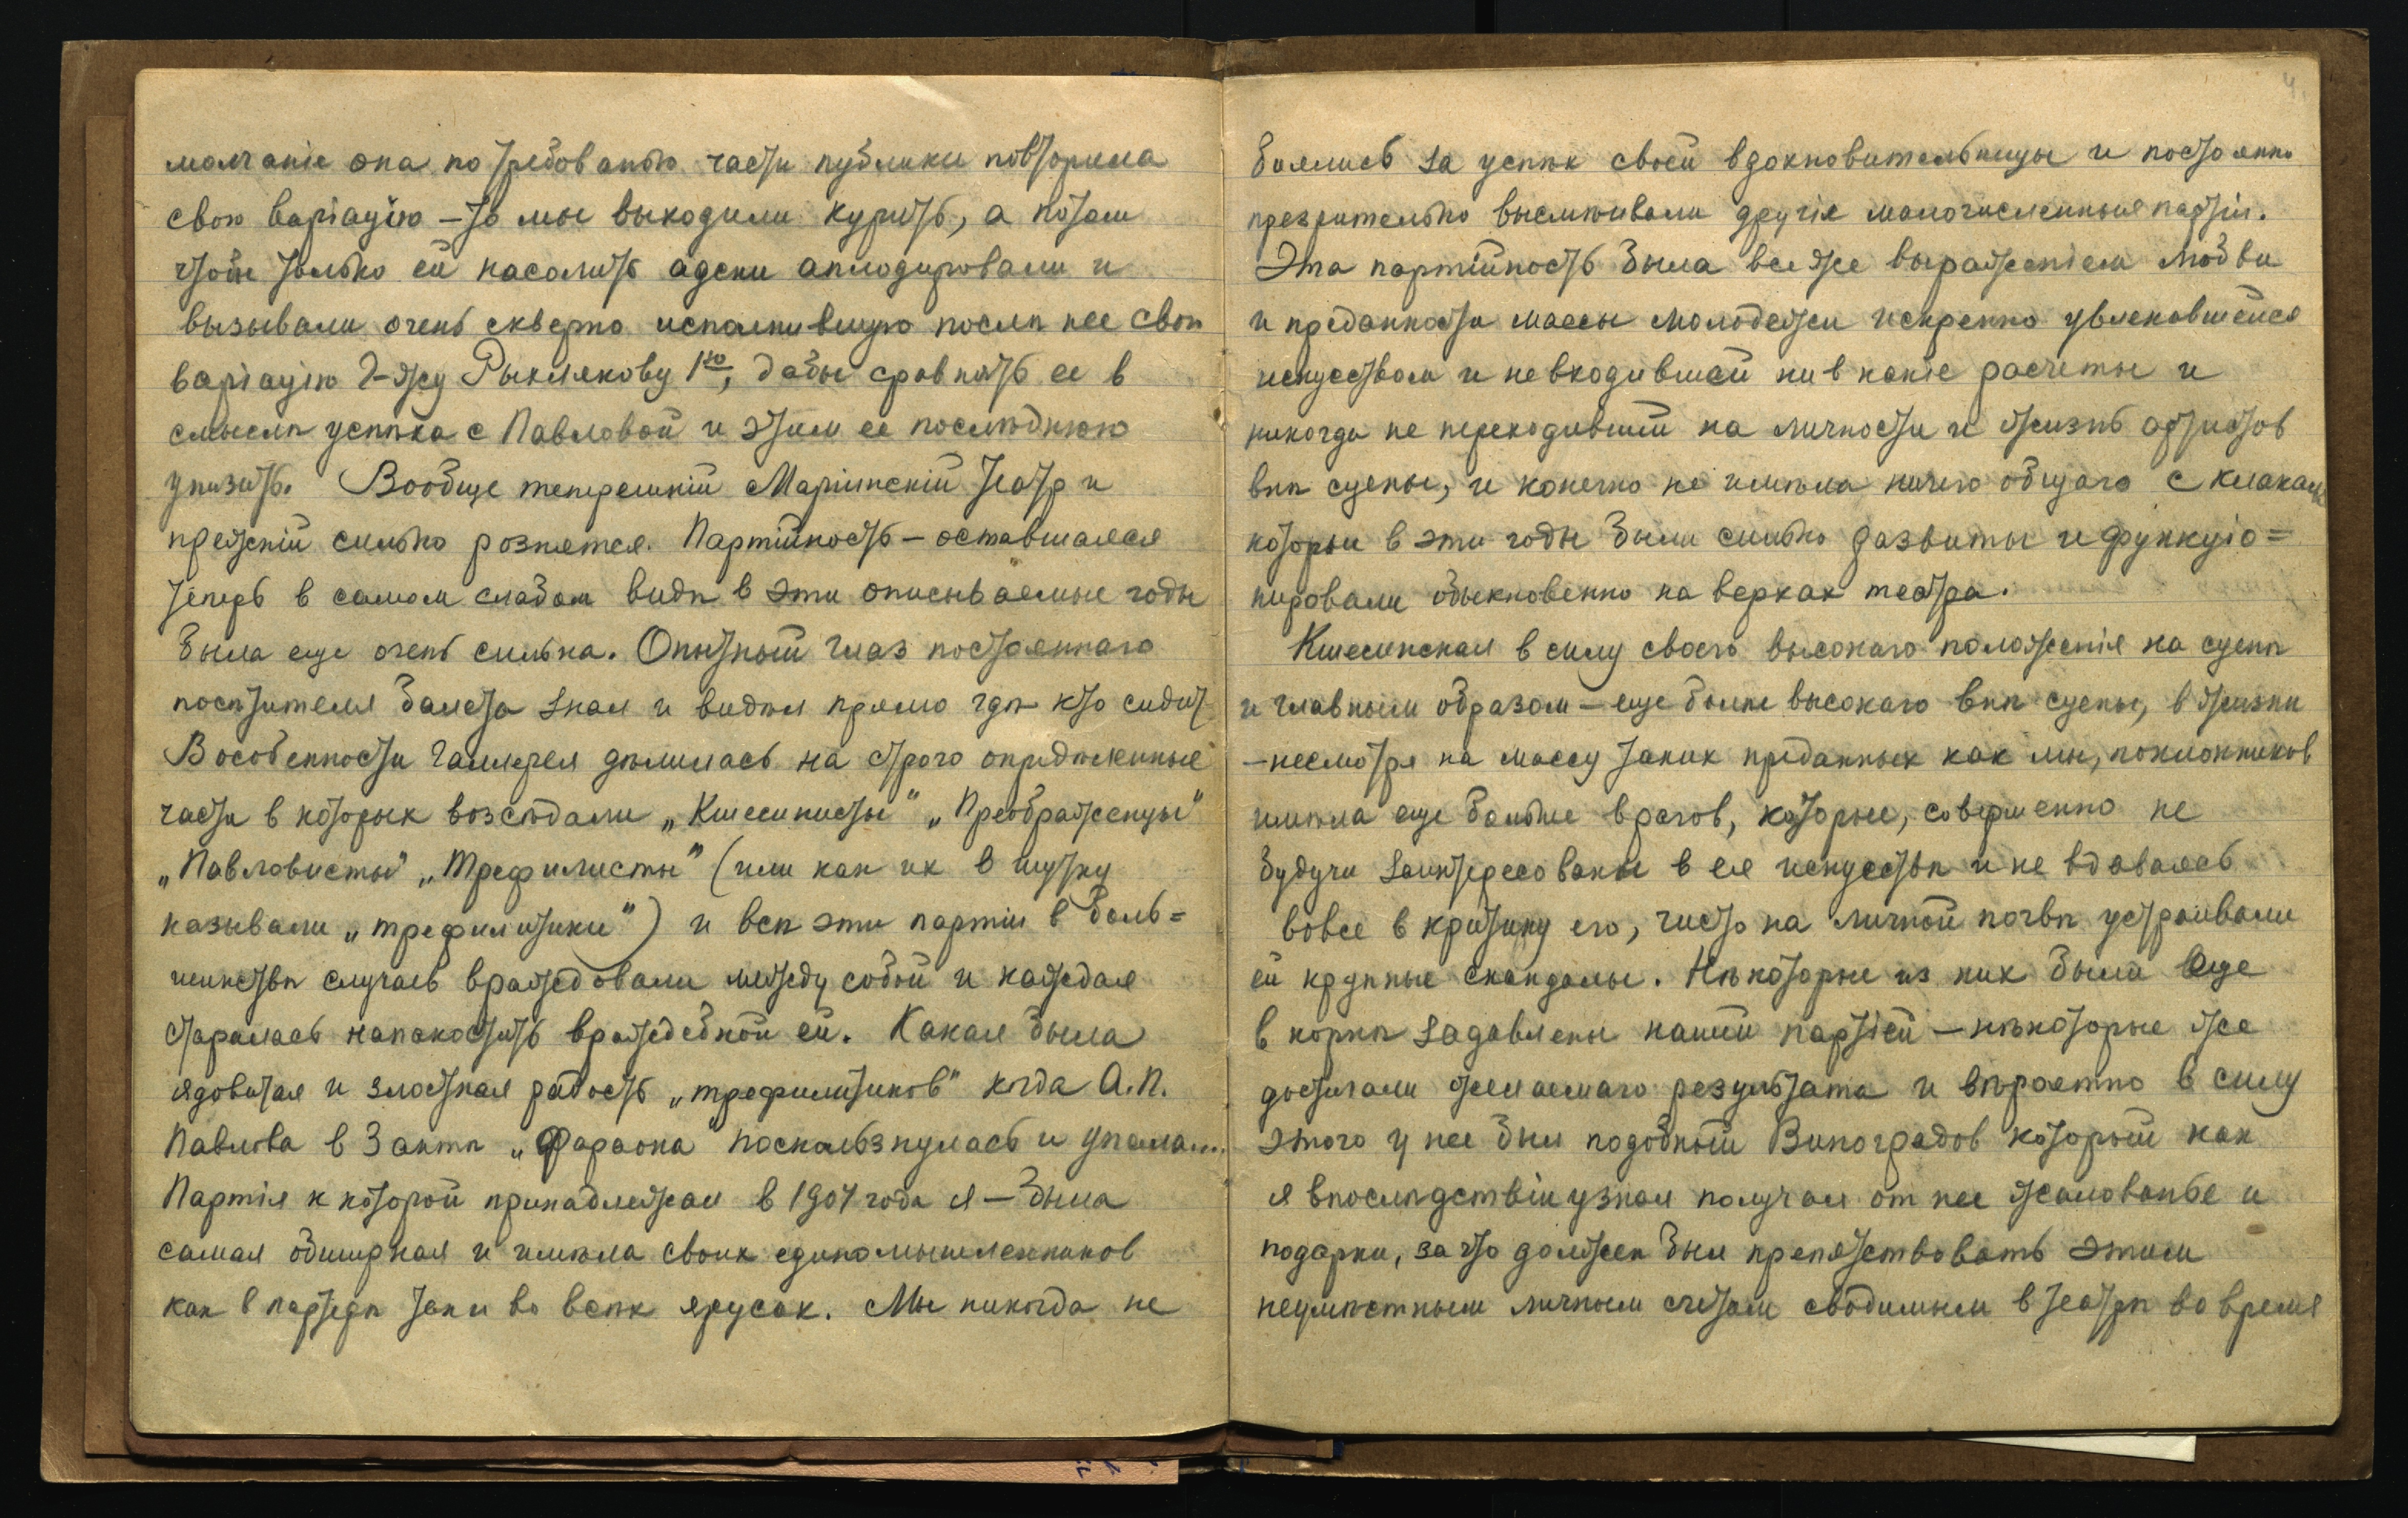 молчаніе она по требованью части публики повторила
свою варіацію – то мы выходили курить, а потом
чтобы только ей насолить адски аплодировали и
вызывали очень скверно исполнившую послѣ нее свою
варіацію Г-жу Рыхлякову 1ю, дабы сравнять ее в
смыслѣ успѣха с Павловой и этим ее послѣднюю
унизить. Вообще теперешній Маріинскій театр и
прежній сильно рознятся. Партійность – оставшаяся
теперь в самом слабом видѣ в эти описываемые годы
была еще очень сильна. Опытный глаз постояннаго
посѣтителя балета знал и видѣл прямо гдѣ кто сидит
В особенности Галлерея дѣлилась на строго опредѣленные
части в которых возсѣдали „Кшесинисты" „Преображенцы"
„Павловисты" „Трефилисты" (или как их в шутку
называли „трефилитики") и всѣ эти партіи в боль=
шинствѣ случаев враждовали между собой и каждая
старалась напакостить враждебной ей. Какая была
ядовитая и злостная радость „трефилитиков" когда А.П.
Павлова в 3 актѣ „Фараона" поскользнулась и упала....
Партія к которой принадлежал в 1907 года я – была
самая обширная и имѣла своих единомышленников
как в партерѣ так и во всѣх ярусах. Мы никогда не
4.
боялись за успѣх своей вдохновительницы и постоянно
презрительно высмѣивали другія малочисленныя партіи.
Эта партійность была все же выраженіем любви
и преданности массы молодежи искренно увлекавшейся
искусством и невходившей ни в какіе расчеты и
никогда не переходившей на личности и жизнь артистов
внѣ сцены, и конечно не имѣла ничего общаго с клаками
которыи в эти годы были сильно развиты и функціо=
нировали обыкновенно на верхах театра.
Кшесинская в силу своего высокаго положенія на сценѣ
и главным образом – еще болѣе высокаго внѣ сцены, в жизни
– несмотря на массу таких преданных как мы, поклонников
имѣла еще больше врагов, которые, совершенно не
будучи заинтересованы в ея искусствѣ и не вдаваясь
вовсе в критику его, чисто на личной почвѣ устраивали
ей крупные скандалы. Нѣкоторые из них были еще
в корнѣ задавлены нашей партіей – нѣкоторые же
достигали желаемаго результата и вѣроятно в силу
этого у нее был подобный Виноградов который как
я впослѣдствіи узнал получал от нее жалованье и
подарки, за что должен был препятствовать этим
неумѣстным личным счетам сводимым в театрѣ во время